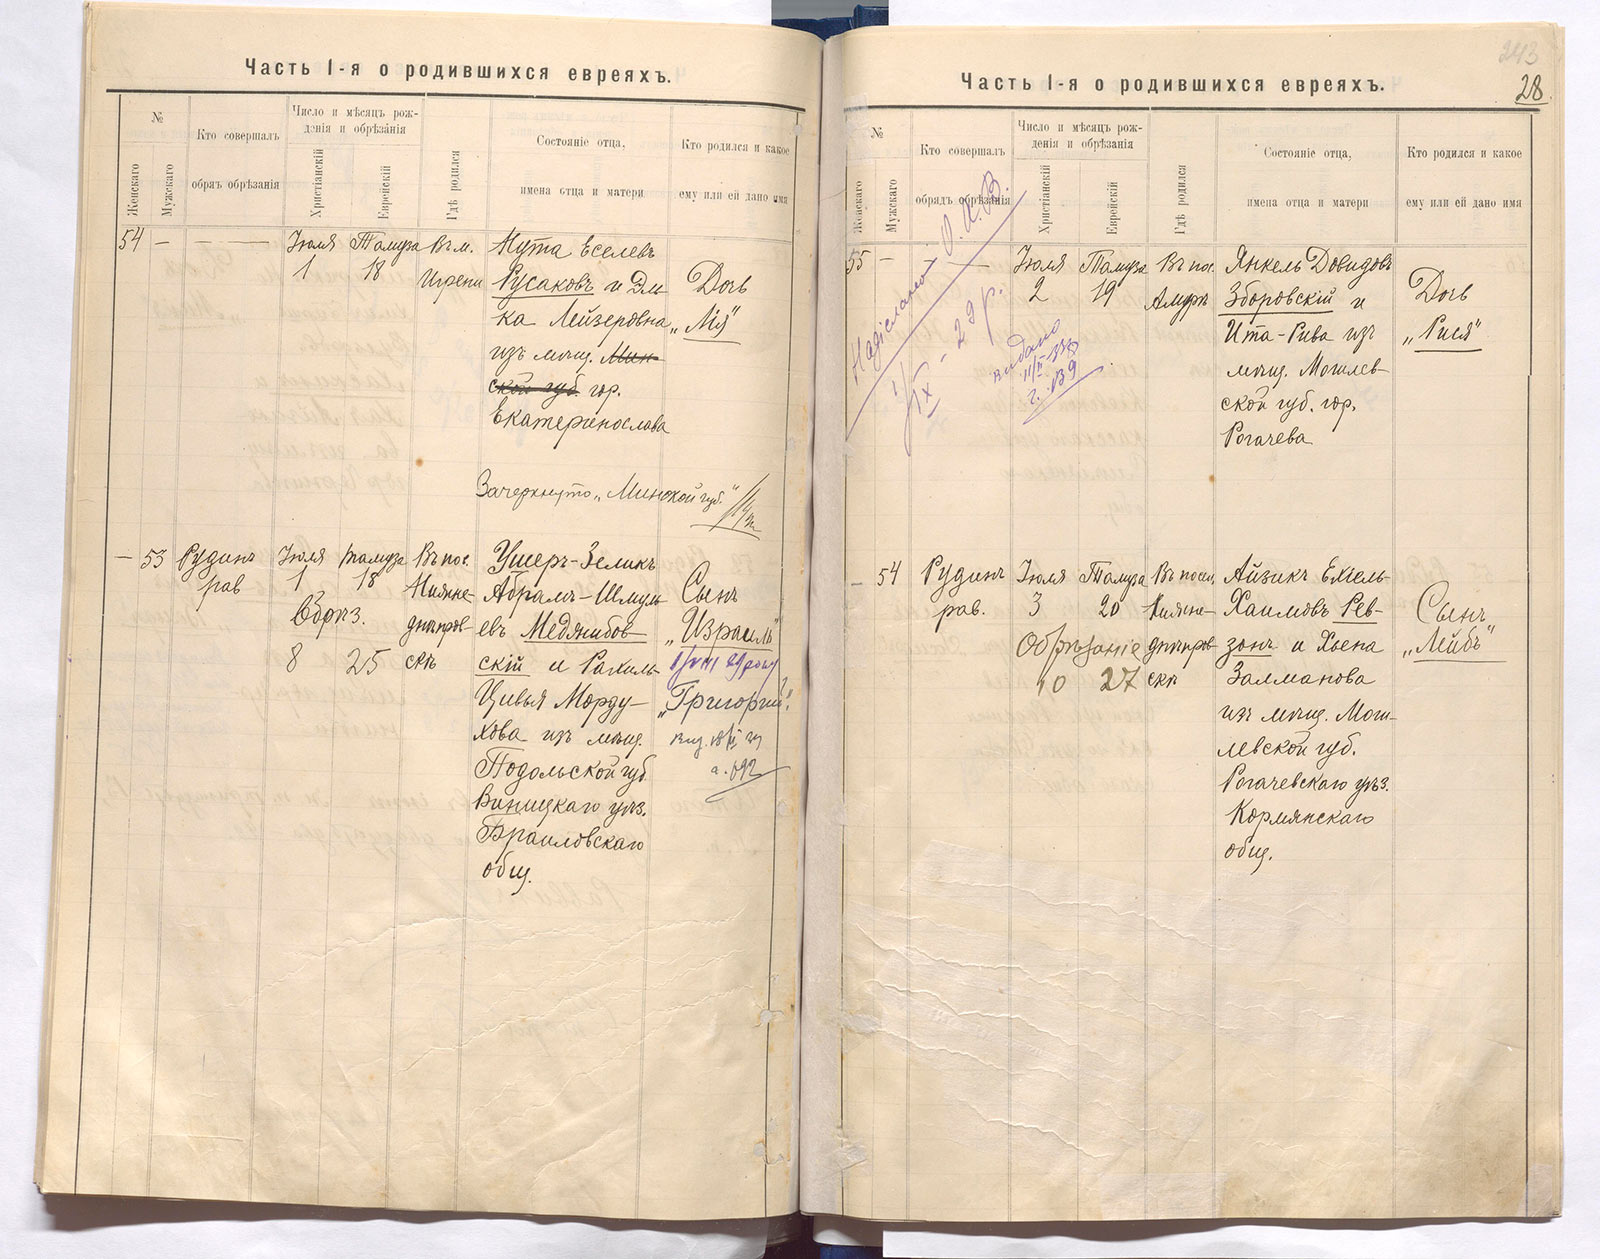 Часть I-я о родившихся евреяхъ.
№
Женскаго
Мужскаго
Кто совершалъ
обрядъ обрѣзанія
Число и мѣсяцъ рож-
денія и обрѣзанія
Христіанскій
Еврейскій
Гдѣ родился
Состояніе отца,
имена отца и матери
Кто родился и какое
ему или ей дано имя
54 — —
Іюля
1
Тамуза
18
Въ м.
Игрени
Нута Еселевъ
Русаковъ и Эль-
ка Лейзеровна
изъ мѣщ. Мин-
ской губ. гор.
Екатеринослава
Дочь
„Лія"
Зачеркнуто „Минской губ."
— 53
Рудинъ
рав
Іюля
1
Тамуза
18
Обрѣз.
8 25
Въ пос.
Нижне-
днѣпров-
скѣ
Ушеръ-Зеликъ
Абрамъ-Шмуль-
евъ Меджибов-
скій и Рахиль-
Цивья Морду-
хова изъ мѣщ.
Подольской губ.
Виницкаго уѣз.
Браиловскаго
общ.
Сынъ
„Израиль"
„Григорий".
Часть I-я о родившихся евреяхъ.
243
28
№
Женскаго
Мужскаго
Кто совершалъ
обрядъ обрѣзанія
Число и мѣсяцъ рож-
денія и обрѣзанія
Христіанскій
Еврейскій
Гдѣ родился
Состояніе отца,
имена отца и матери
Кто родился и какое
ему или ей дано имя
55 — —
Іюля
2
Тамуза
19
Въ пос.
Амурѣ
Янкель Довидовъ
Зборовскій и
Ита-Рива изъ
мѣщ. Могилев-
ской губ. гор.
Рогачева
Дочь
„Рися"
Надіслано
29 р.
видано
— 54
Рудинъ
рав.
Іюля
3
Тамуза
20
Обрѣзаніе
10 27
Въ посел.
Нижне-
днѣпров-
скѣ
Айзикъ Ехіель-
Хаимовъ Рев-
зонъ и Хьена
Залманова
изъ мѣщ. Моги-
левской губ.
Рогачевскаго уѣз.
Кормянскаго
общ.
Сынъ
„Лейбъ"